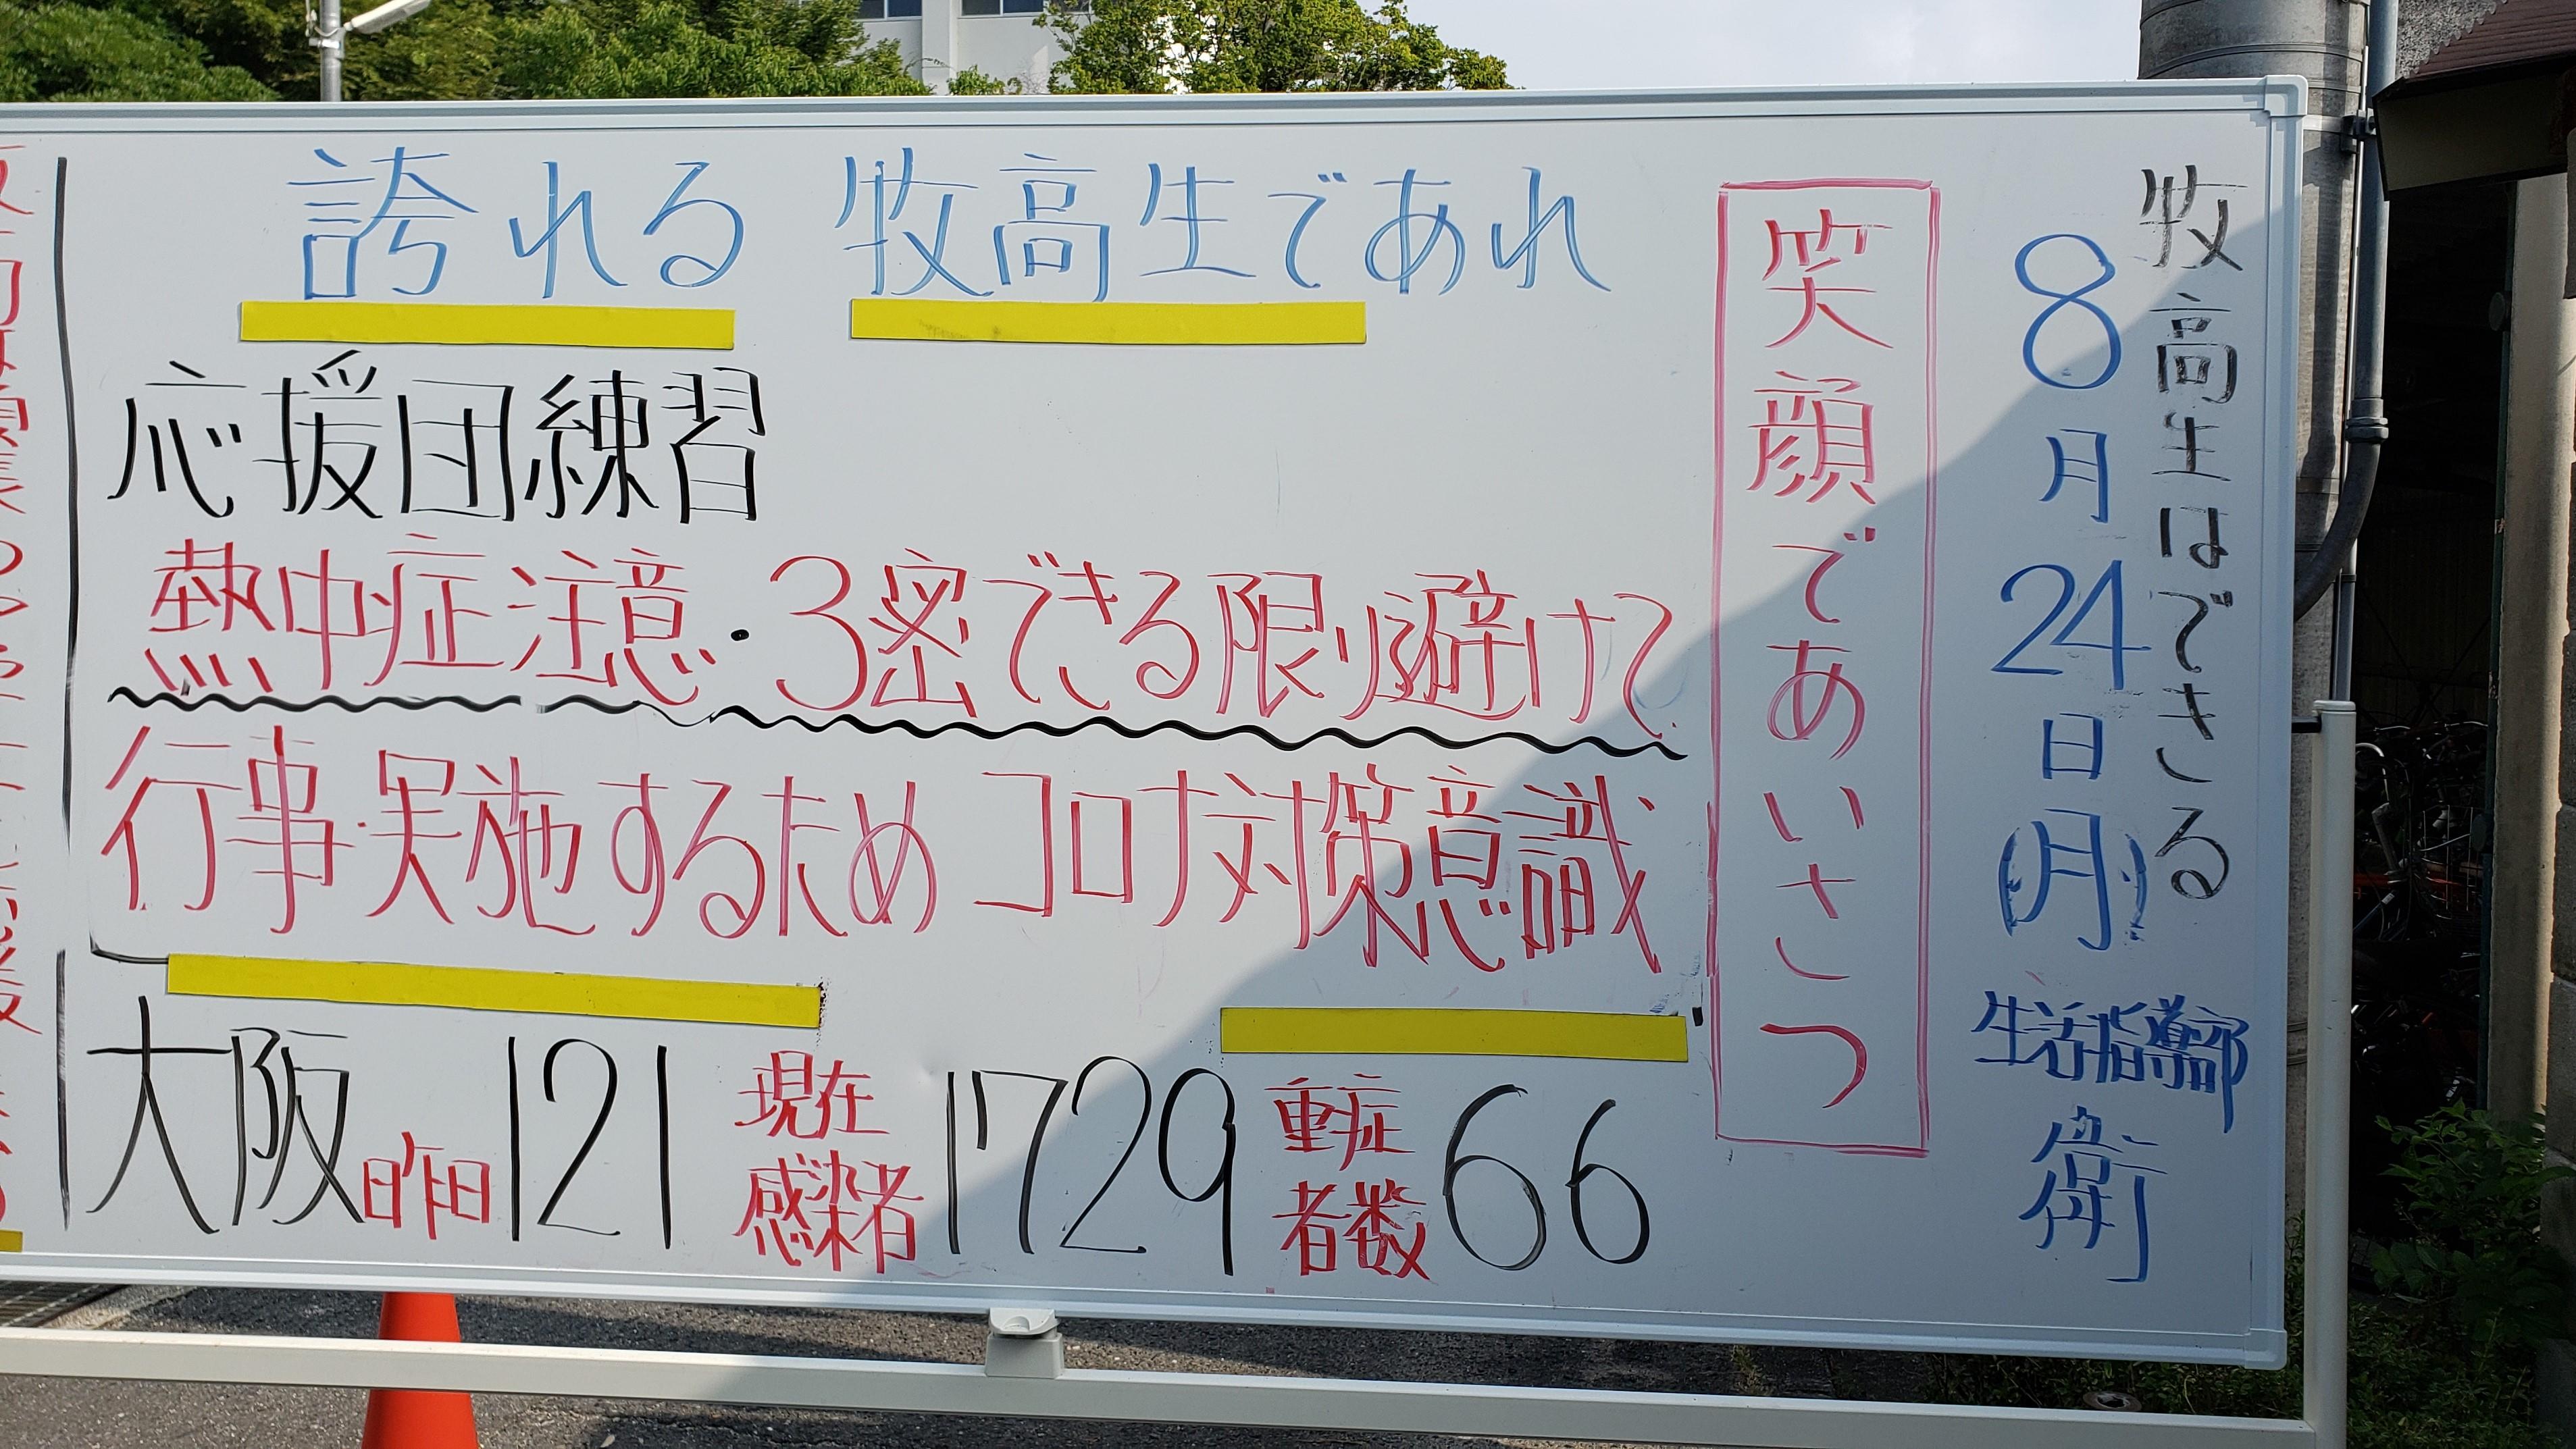 牧高生はできる
8月24日(月) 生活指導部 衛
笑顔であいさつ
誇れる 牧高生であれ
応援団練習
熱中症注意・3密できる限り避けて
行事・実施するため コロナ対策意識
大阪 昨日 121 現在感染者 1729 重症者数 66